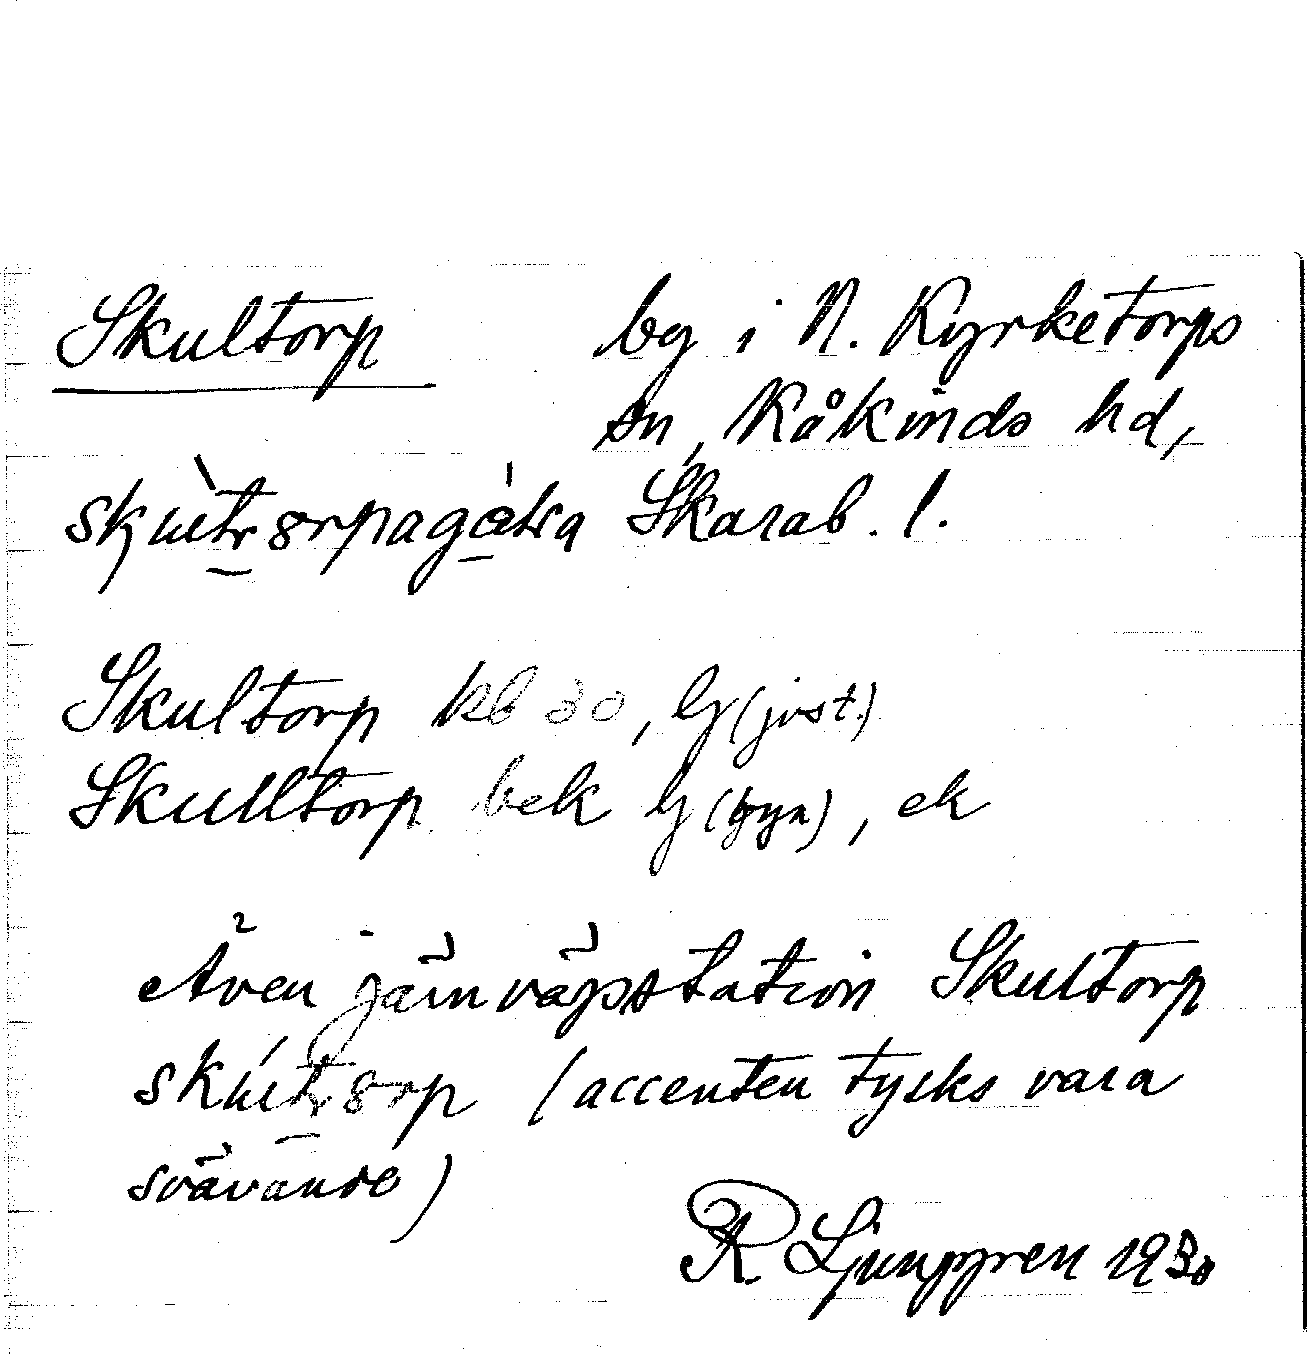 Skultorp by i N. Kyrketorps
sn, Kåkinds hd,
Skarab. l.
Skultorp kb 30, lj (jvst.)
Skulltorp bek lj (byn), ek
Även järnvägsstation Skultorp
(accenten tycks vara
svävande)
R Ljunggren 1930